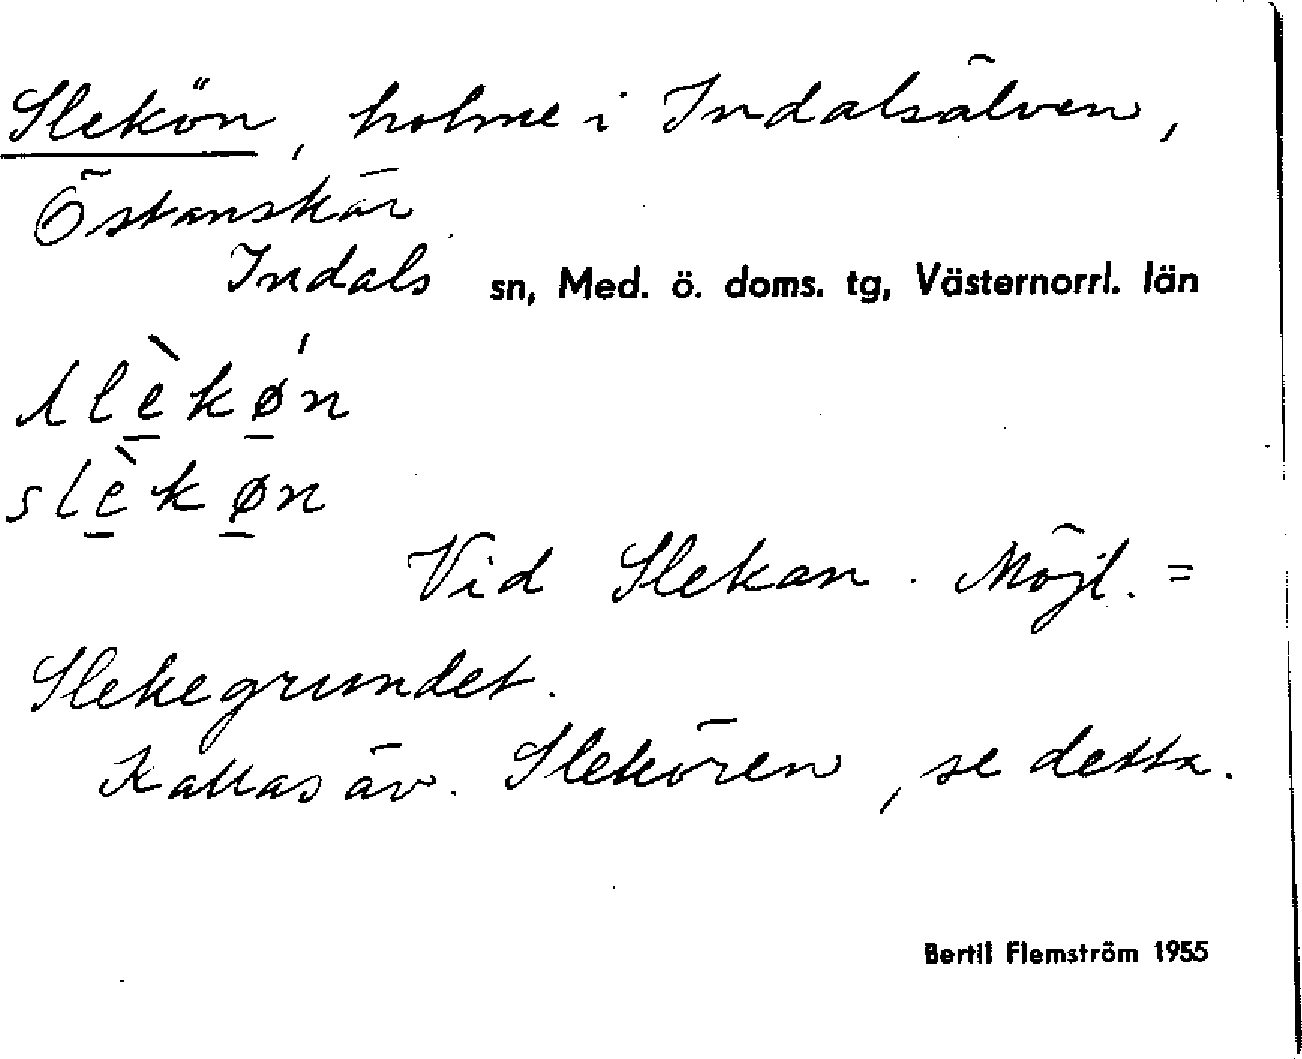 Slekön, holme i Indalsälven,
Östanskär
Indals sn, Med. ö. doms. tg, Västernorrl. län
slè̠kǿ̠n
slè̠kø̠n
Vid Slekan. Möjl. =
Slekegrundet.
Kallas äv. Slekören, se detta.
Bertil Flemström 1955